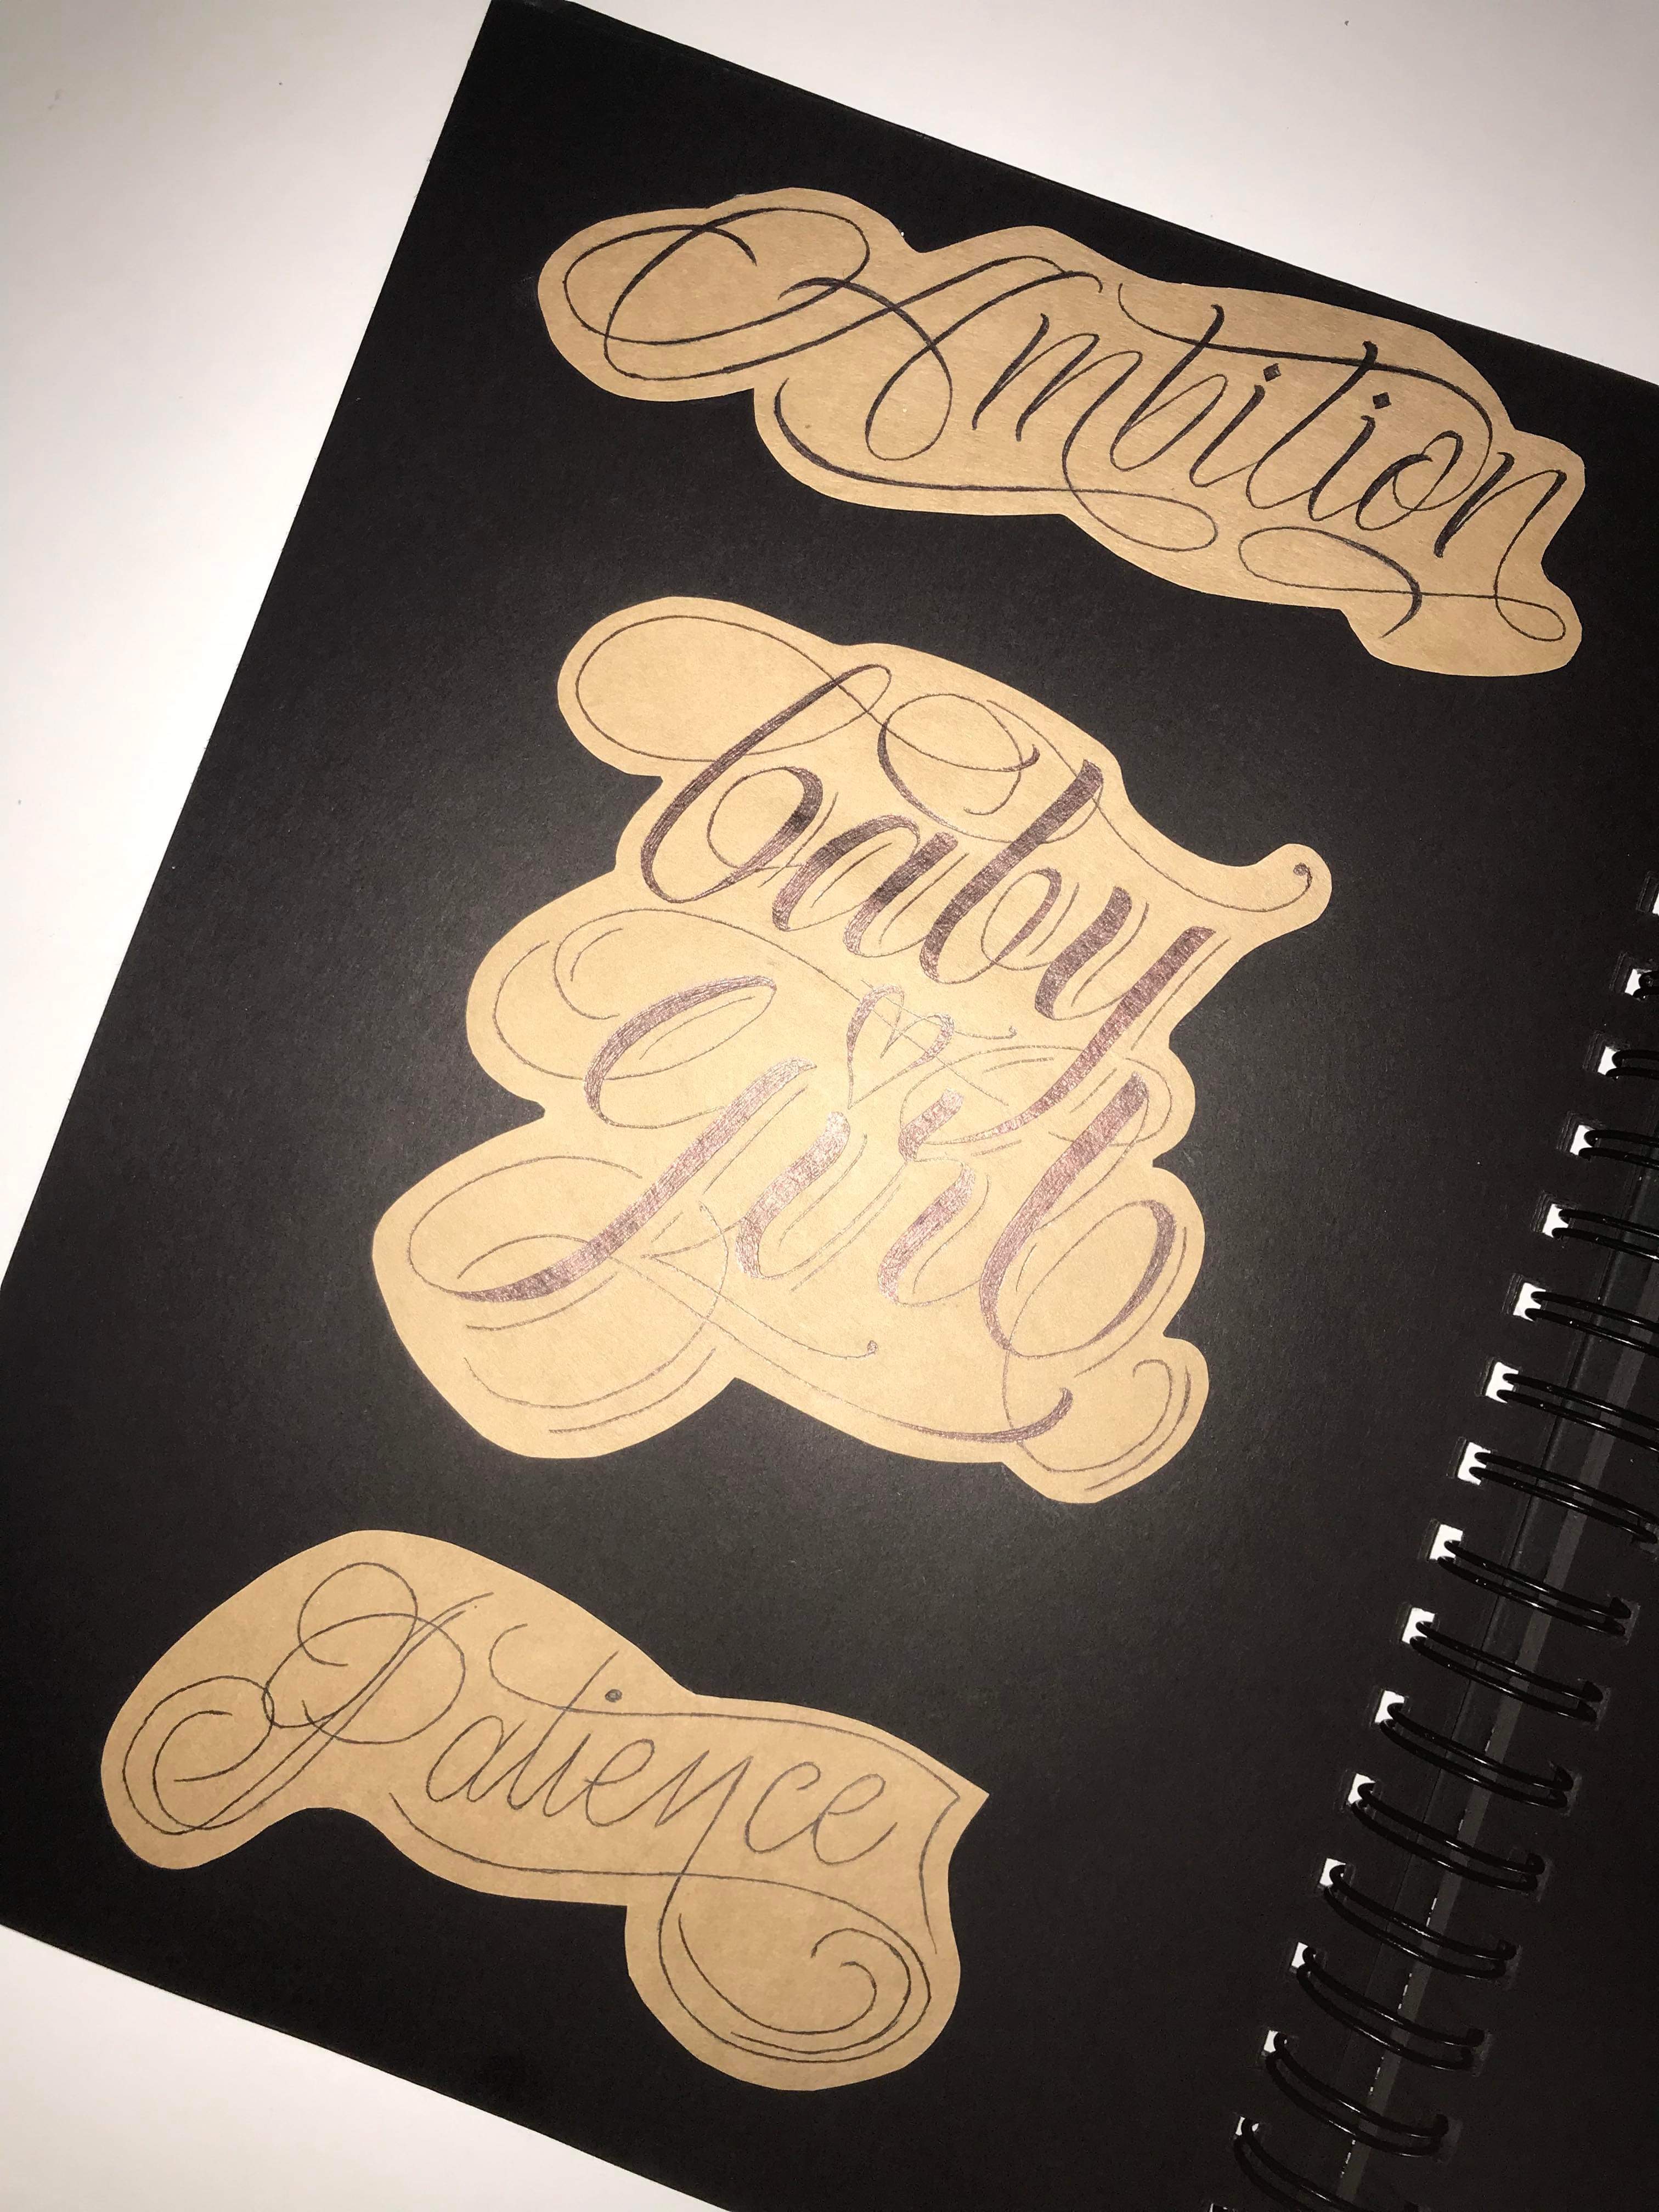 Ambition
baby
girl
Patience